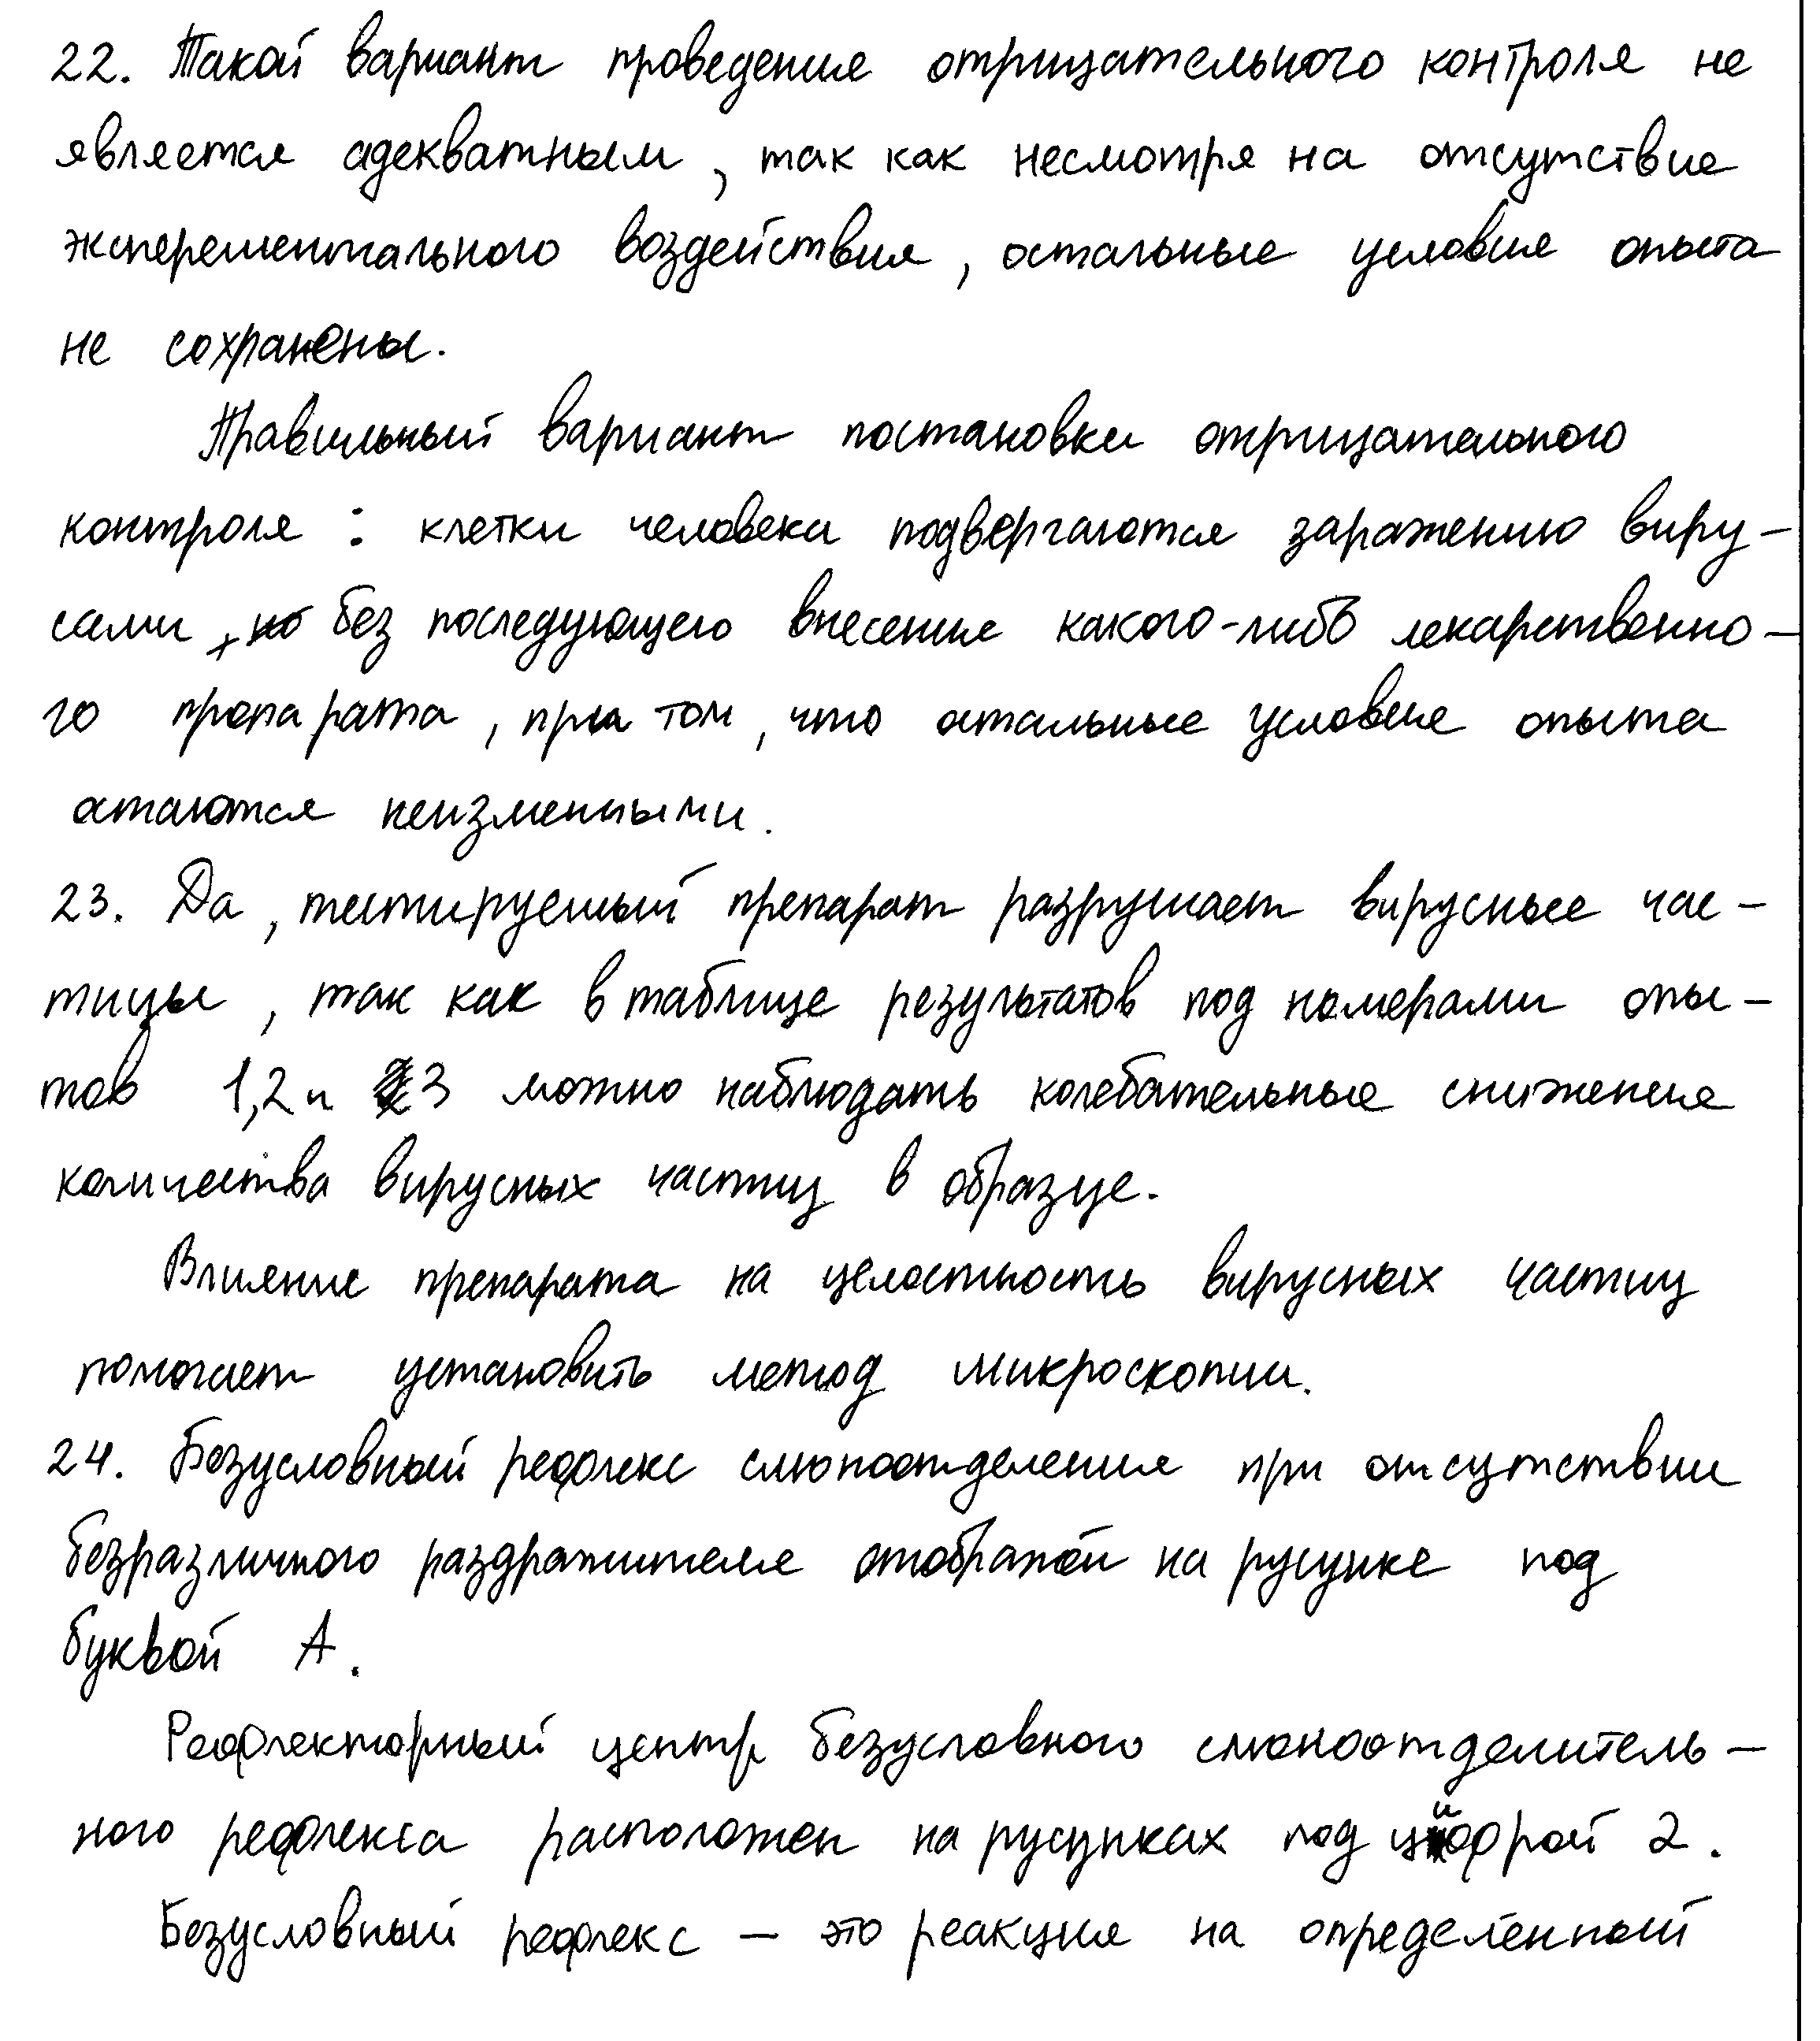 22. Такой вариант проведения отрицательного контроля не
является адекватным, так как несмотря на отсутствие
эксперементального воздействия, остальные условия опыта
не сохранены.
Правильный вариант постановки отрицательного
контроля: клетки человека подвергаются заражению виру-
сами, но без последующего внесения какого-либо лекарственно-
го препарата, при том, что остальные условия опыта
остаются неизменными.
23. Да, тестируемый препарат разрушает вирусные час-
тицы, так как в таблице результатов под номерами опы-
тов 1,2 и 3 можно наблюдать колебательные снижения
количества вирусных частиц в образце.
Влияние препарата на целостность вирусных частиц
помогает установить метод микроскопии.
24. Безусловный рефлекс слюноотделения при отсутствии
безразличного раздражителя отображён на русунке под
буквой А.
Рефлекторный центр безусловного слюноотделитель-
ного рефлекса расположен на русунках под цифрой 2.
Безусловный рефлекс – это реакция на определённый